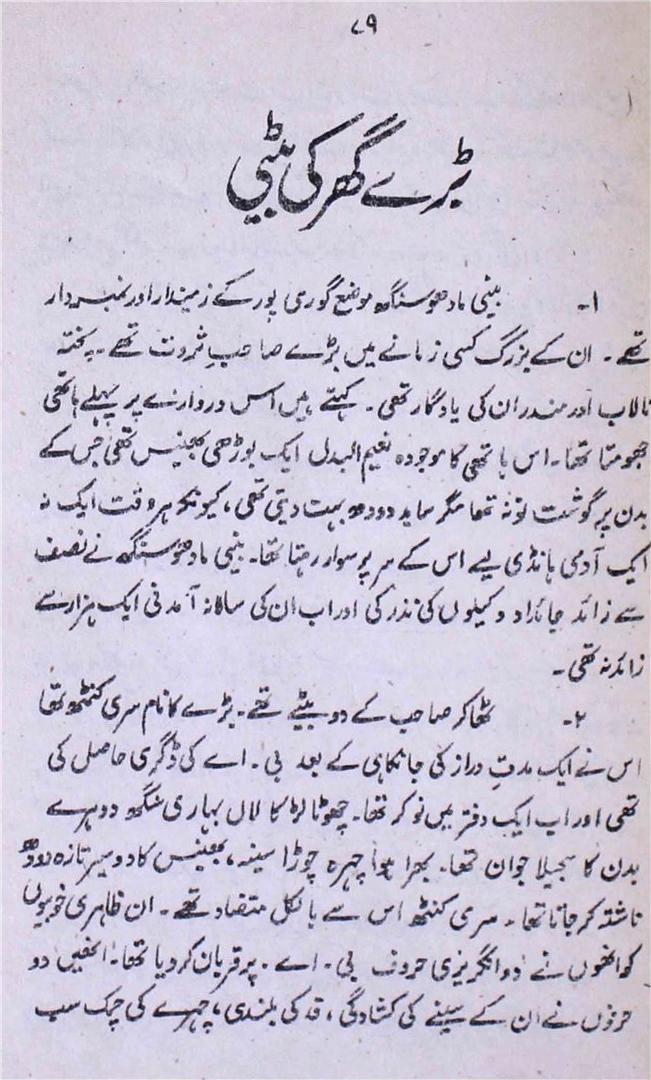 ۸۹
بڑے گھر کی بیٹی
۱۔ بینی مادھو سنگھ موضع گوری پور کے زمیندار اور نمبردار
تھے۔ ان کے بزرگ کسی زمانے میں بڑے صاحبِ ثروت تھے۔ پختہ
تالاب اور مندر ان کی یادگار تھی۔ کہتے ہیں اس دروازے پر پہلے ہاتھی
جھومتا تھا۔ اس ہاتھی کا موجودہ نعیم البدل ایک بوڑھی بھینس تھی جس کے
بدن پر گوشت تو نہ تھا مگر شاید دودھ بہت دیتی تھی، کیونکہ ہر وقت ایک نہ
ایک آدمی ہانڈی لیے اس کے سر پر سوار رہتا تھا۔ بینی مادھو سنگھ نے نصف
سے زائد جائداد وکیلوں کی نذر کی اور اب ان کی سالانہ آمدنی ایک ہزار سے
زائد نہ تھی۔
۲۔ ٹھاکر صاحب کے دو بیٹے تھے۔ بڑے کا نام سری کنٹھ تھا
اس نے ایک مدتِ دراز کی جانکاہی کے بعد بی۔ اے کی ڈگری حاصل کی
تھی اور اب ایک دفتر میں نوکر تھا۔ چھوٹا لڑکا لال بہاری سنگھ دوہرے
بدن کا سجیلا جوان تھا۔ بھرا ہوا چہرہ چوڑا سینہ، بھینس کا دو سیر تازہ دودھ
ناشتہ کر جاتا تھا۔ سری کنٹھ اس سے بالکل متضاد تھے۔ ان ظاہری خوبیوں
کو انھوں نے دو انگریزی حروف بی۔ اے۔ پر قربان کر دیا تھا۔ انھیں دو
حرفوں نے ان کے سینے کی کشادگی، قد کی بلندی، چہرے کی چمک سب